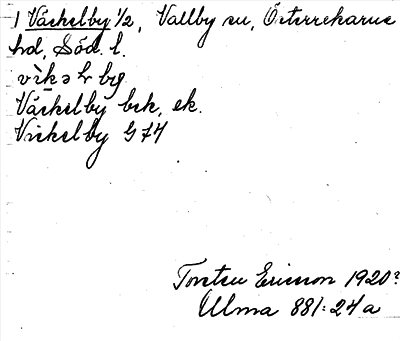 1 Väckelby 1/2, Vallby sn, Österrekarne
hd, Söd. l.
Väckelby bsk, ek.
Vickelby G 74
Torsten Ericson 1920?
Ulma 881:24a